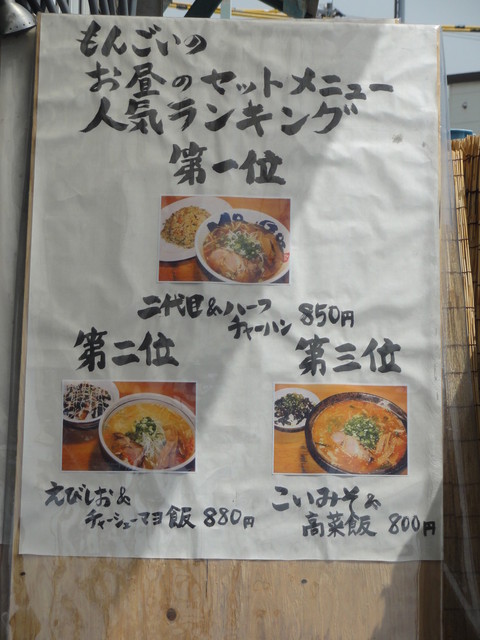 もんごいの
お昼のセットメニュー
人気ランキング
第一位
二代目&ハーフ
チャーハン 850円
第二位
えびしお&
チャーシューマヨ飯 880円
第三位
こいみそ&
高菜飯 800円